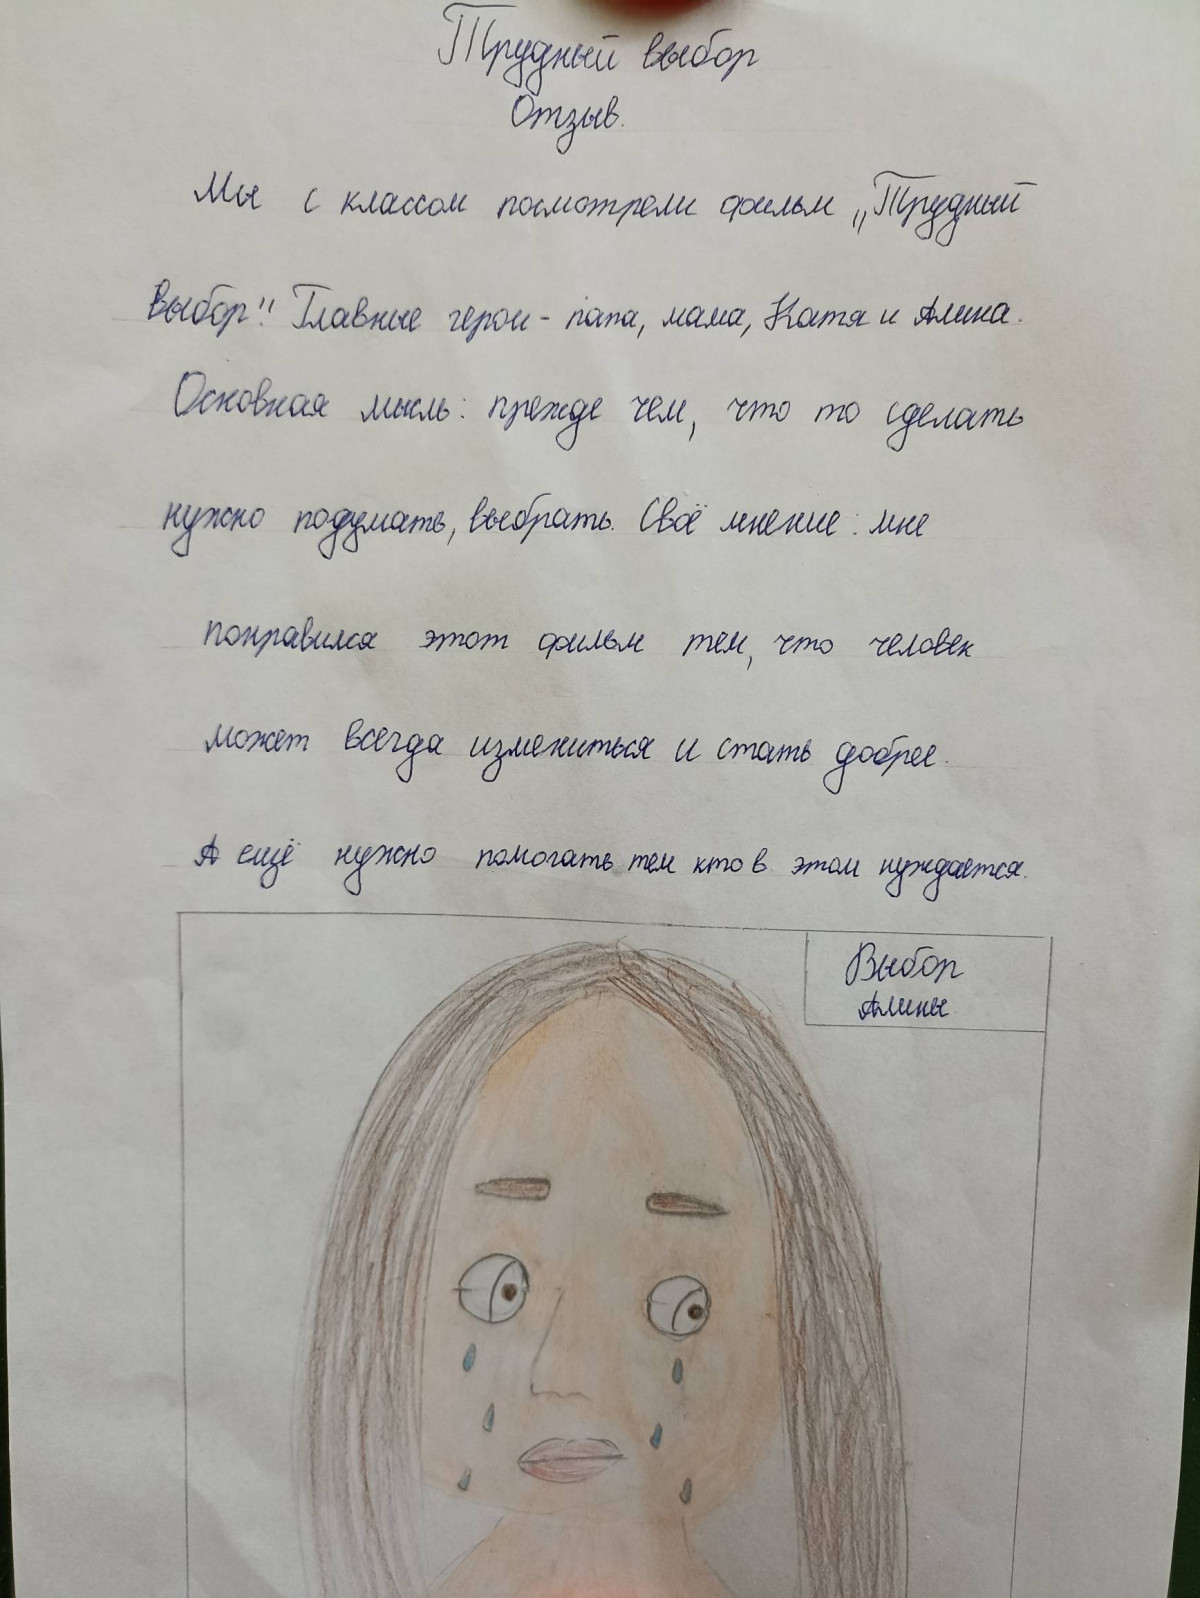 Трудный выбор
Отзыв.
Мы с классом посмотрели фильм „Трудный
выбор". Главные герои - папа, мама, Катя и Алина.
Основная мысль: прежде чем, что то сделать
нужно подумать, выбрать. Своё мнение: мне
понравился этот фильм тем, что человек
может всегда измениться и стать добрее.
А ещё нужно помогать тем кто в этом нуждается.
Выбор
Алины